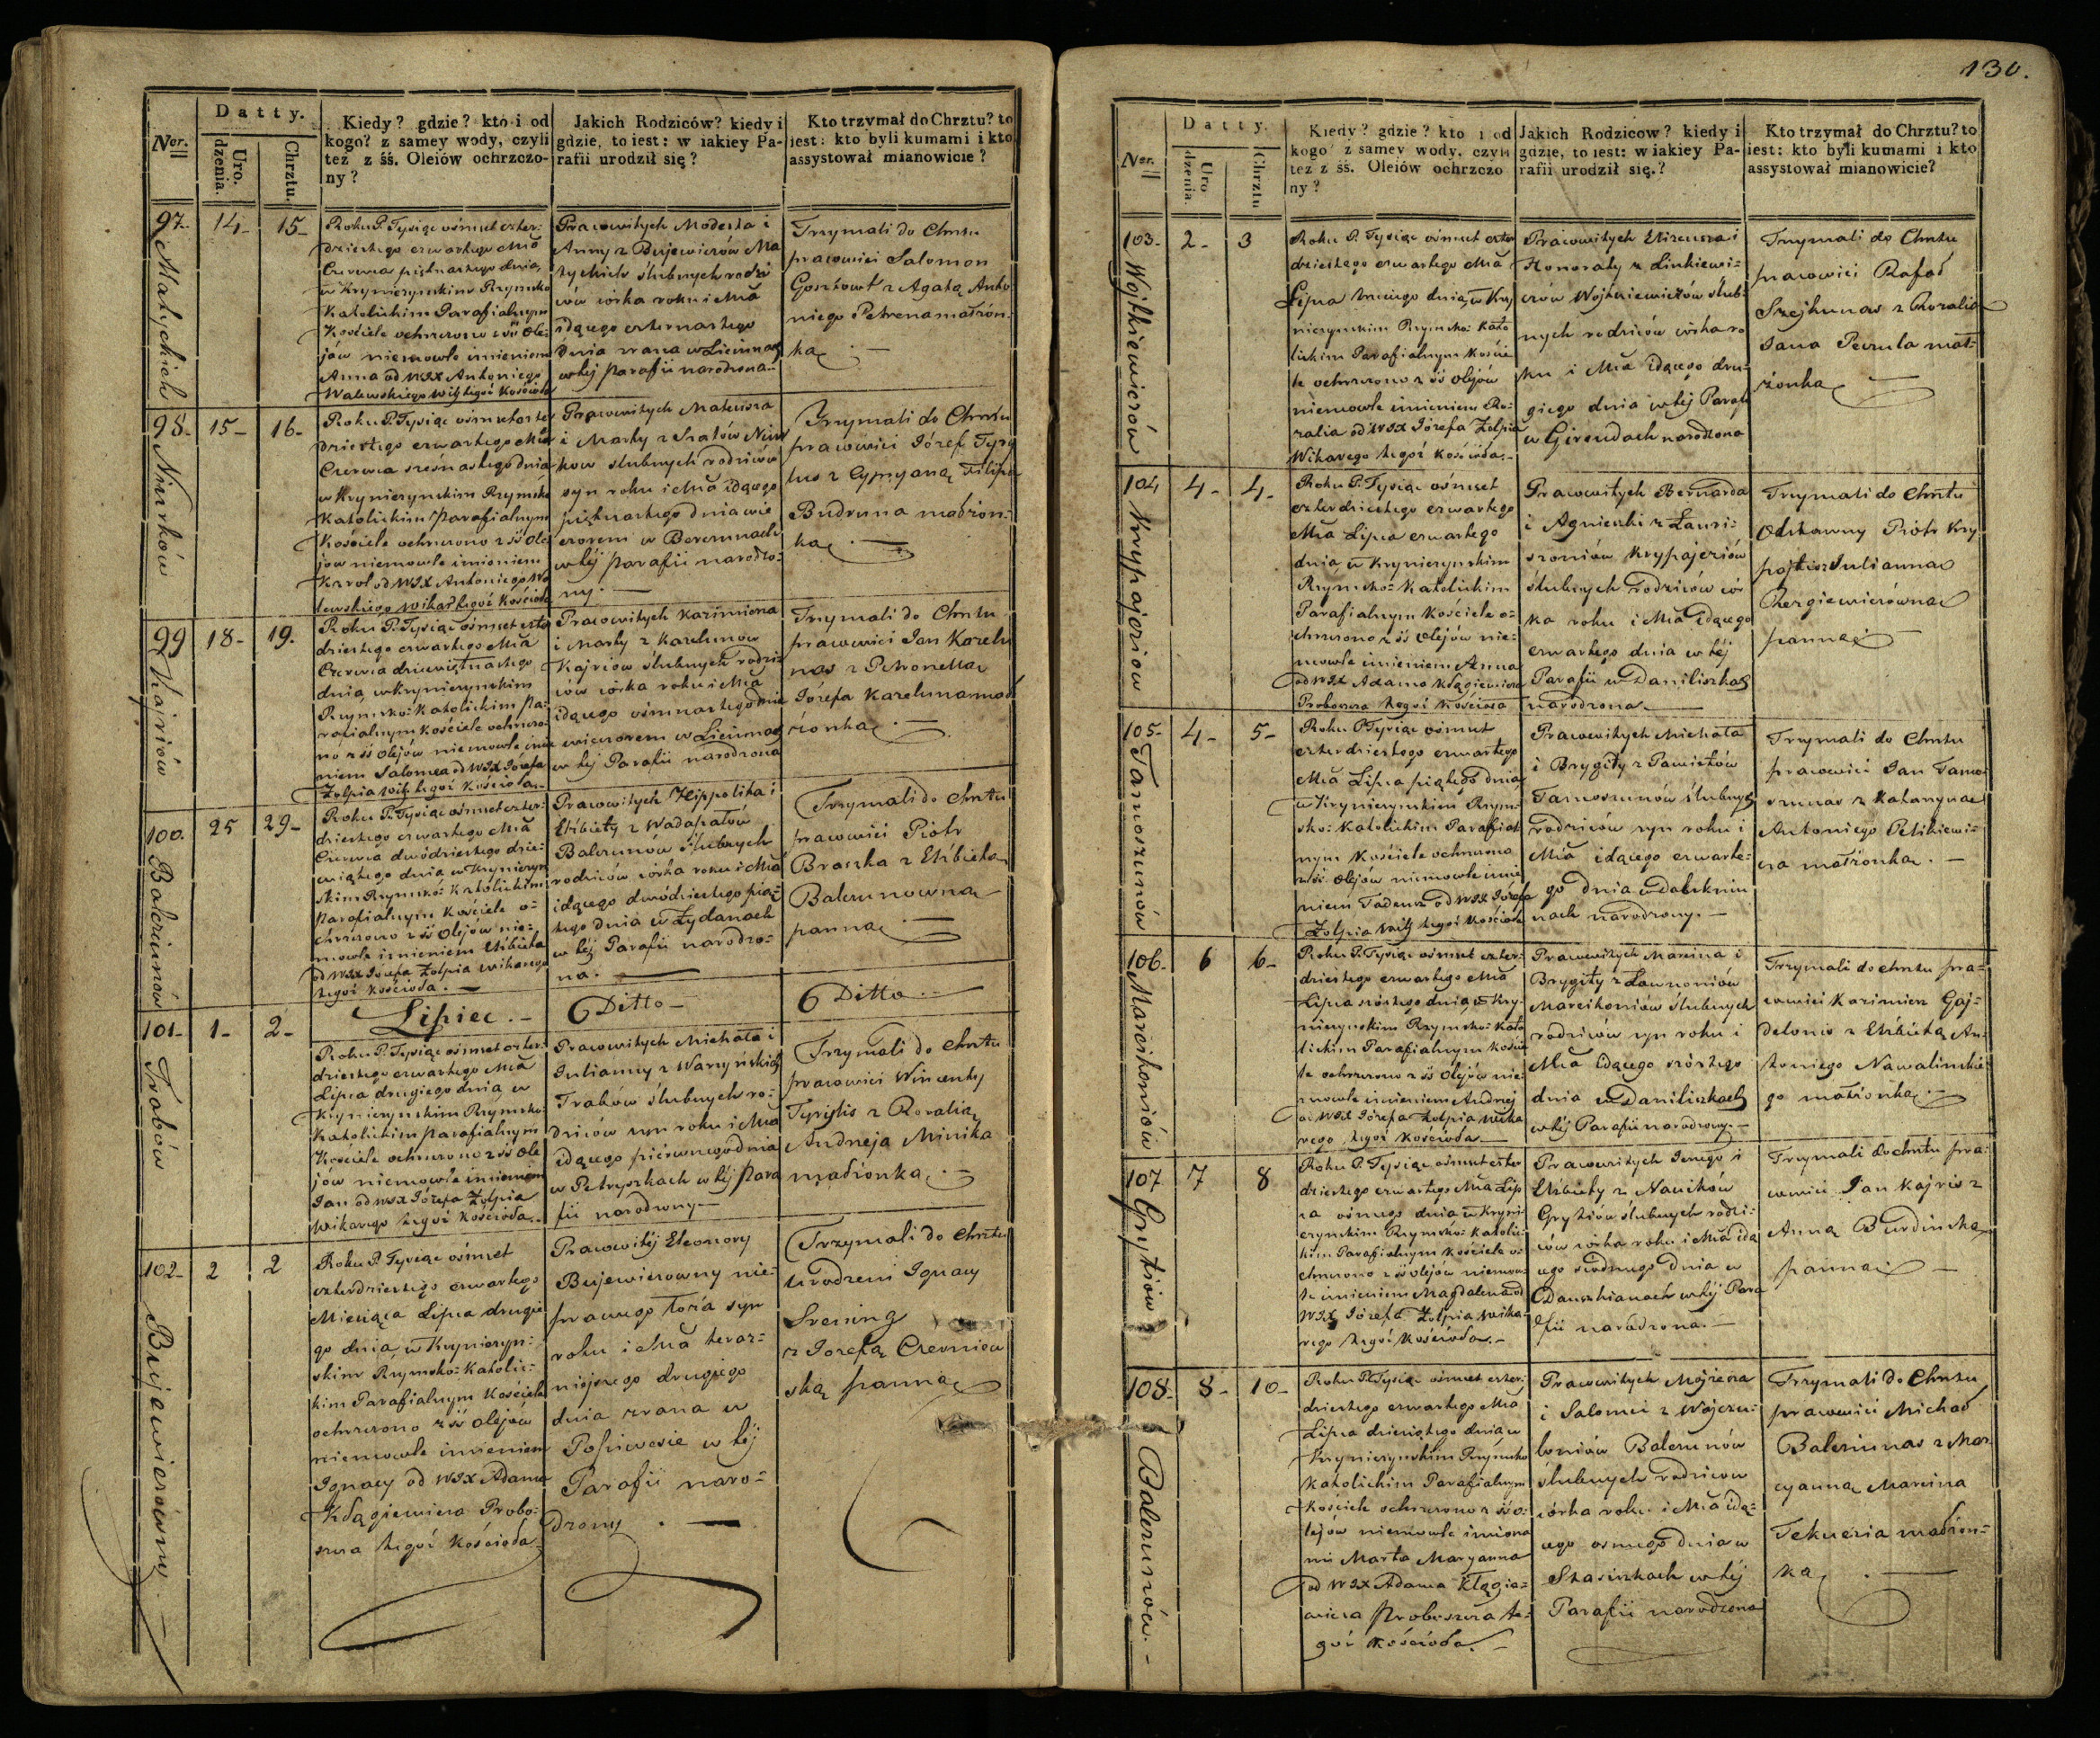 130.
Datty.
Ner.
Uro.
dzenia.
Chrztu.
Kiedy? gdzie? kto i od
kogo? z samey wody, czyli
też z śś. Oleiów ochrzczo-
ny?
Jakich Rodziców? kiedy i
gdzie, to iest: w iakiey Pa-
rafii urodził się?
Kto trzymał do Chrztu? to
iest: kto byli kumami i kto
assystował mianowicie?
97.
Matyckich
14-
15-
Roku P. Tysiąc ośmset czter-
dziestego czwartego Mca
Czerwca piętnastego dnia,
w Kryniczyńskim Rzymsko
Katolickim Parafialnym
Kościele ochrzczono z śś Ole-
jów niemowle imieniem
Anna od WJX Antoniego
Walewskiego Wik tegoż Kościoła
Pracowitych Modesta i
Anny z Bujewiczów Ma
tyckich ślubnych rodzi
ców córka roku i Mca
idącego czternastego
dnia zrana w
w tej parafii narodzona.-
Trzymali do Chrztu
pracowici Salomon
z Agatą Anto
niego małżon-
ką. -
98-
15-
16-
Roku P. Tysiąc ośmset czter
dziestego czwartego Mca
Czerwca szesnastego dnia
w Krynieczyńskim Rzymsko
Katolickim Parafialnym
Kościele ochrzczono z śś Ole
jów niemowle imieniem
Karol od WJX Antoniego Wa
lewskiego Wikar tegoż Kościoła
Pracowitych Mateusza
i Marty z
ślubnych rodziców
syn roku i Mca idącego
piętnastego dnia wie
czorem w
w tej parafii narodzo-
ny. -
Trzymali do Chrztu
pracowici Józef
z Cypryaną Filipa
Budruna małżon-
ką. -
99
Kajriów
18-
19.
Roku P. Tysiąc ośmset czter
dziestego czwartego Mca
Czerwca dziewiętnastego
dnia w Krynieczyńskim
Rzymsko Katolickim Pa-
rafialnym Kościele ochrzczo-
no z śś Olejów niemowle imie
niem Salomea od WJX Józefa
Żołpia Wik tegoż Kościoła.-
Pracowitych Kazimierza
i Marty z Karelunów
Kajriów ślubnych rodzi
ców córka roku i Mca
idącego ośmnastego dnia
wieczorem w
w tej Parafii narodzona
Trzymali do Chrztu
pracowici Jan Karelu
nas z Petronellą
Józefa Kareluna mał
żonką. -
100.
Balczunów
25
29-
Roku P. Tysiąc ośmset czter-
dziestego czwartego Mca
Czerwca dwódziestego dzie-
wiątego dnia w Krynieczyń
skim Rzymsko-Katolickim
Parafialnym Kościele o-
chrzczono z śś Olejów nie-
mowle imieniem Elżbieta
od WJX Józefa Żołpia Wikarego
tegoż Kościoła. -
Pracowitych Hippolita i
Elżbiety z Wadapałów
Balczunow ślubnych
rodziców córka roku i Mca
idącego dwódziestego pią-
tego dnia w Żydanach
w tej Parafii narodzo-
na. -
Trzymali do Chrztu
pracowici Piotr
Braszka z Elżbietą
Balczunowną
panną. -
Lipiec. -
Ditto -
Ditto. -
101-
Trabów
1-
2-
Roku P. Tysiąc ośmset czter-
dziestego czwartego Mca
Lipca drugiego dnia w
Krynieczyńskim Rzymsko-
Katolickim Parafialnym
Kościele ochrzczono z śś Ole
jów niemowle imieniem
Jan od WJX Józefa Żołpia
Wikarego tegoż Kościoła.-
Pracowitych Michała i
Julianny z Waryńskich
Trabów ślubnych ro-
dziców syn roku i Mca
idącego pierwszego dnia
w Petryszkach w tej Para
fii narodzony.-
Trzymali do Chrztu
pracowici Wincenty
z Rozalią
Andrzeja Minika
małżonką. -
102-
Bujewiczówny. -
2
2
Roku P. Tysiąc ośmset
czterdziestego czwartego
Miesiąca Lipca drugie
go dnia w Krynieczyń-
skim Rzymsko-Katolic-
kim Parafialnym Kościele
ochrzczono z śś Olejów
niemowle imieniem
Ignacy od WJX Adama
Kłągiewicza Probo-
szcza tegoż Kościoła
Pracowitej Eleonory
Bujewiczowny nie-
prawego łoża syn
roku i Mca teraz-
niejszego drugiego
dnia zrana w
w tej
Parafii naro-
dzony. -
Trzymali do Chrztu
Urodzeni Ignacy
z Józefą Czerniew
ską panną
Datty.
Ner.
Uro
dzenia.
Chrztu
Kiedy? gdzie? kto i od
kogo? z samey wody, czyli
też z śś. Oleiów ochrzczo
ny?
Jakich Rodziców? kiedy i
gdzie, to iest: w iakiey Pa-
rafii urodził się.?
Kto trzymał do Chrztu? to
iest: kto byli kumami i kto
assystował mianowicie?
103-
Wojtkiewiczów
2-
3
Roku P. Tysiąc ośmset czter
dziestego czwartego Mca
Lipca trzeciego dnia, w Kry
nieczyńskim Rzymsko-Kato
lickim Parafialnym Koście
le ochrzczono z śś Olejów
niemowle imieniem Ro-
zalia od WJX Józefa Żołpia
Wikarego tegoż Kościoła.-
Pracowitych Elizeusza i
Honoraty z Linkiewi-
czów Wojtkiewiczów ślub-
nych rodziców córka ro
ku i Mca idącego dru-
giego dnia w tej Parafii
w Girendach narodzona
Trzymali do Chrztu
pracowici Rafał
z Rozalią
Jana mał-
żonką -
104
Krypajciów
4-
4-
Roku P. Tysiąc ośmset
czterdziestego czwartego
Mca Lipca czwartego
dnia w Krynieczyńskim
Rzymsko-Katolickim
Parafialnym Kościele o-
chrzczono z śś Olejów nie-
mowle imieniem Anna
od WJX Adama Kłągiewicza
Proboszcza tegoż Kościoła
Pracowitych Bernarda
i Agnieszki z
ślubnych rodziców cór
ka roku i Mca idącego
czwartego dnia w tej
Parafii w Daniliszkach
narodzona. -
Trzymali do Chrztu
Odstawny Piotr Kry
z Julianną
panną. -
105-
Tamoszunów
4-
5-
Roku P. Tysiąc ośmset
czterdziestego czwartego
Mca Lipca piątego dnia
w Krynieczyńskim Rzym-
sko-Katolickim Parafial
nym Kościele ochrzczono
z śś Olejów niemowle imie
niem Tadeusz od WJX Józefa
Żołpia Wik tegoż Kościoła
Pracowitych Michała
i Brygity z
Tamoszunów ślubnych
rodziców syn roku i
Mca idącego czwarte-
go dnia w
nach narodzony. -
Trzymali do Chrztu
pracowici Jan Tamo
szunas z Katarzyną
Antoniego Petkiewi-
cza małżonką. -
106-
Marcikoniów
6
6-
Roku P. Tysiąc ośmset czter-
dziestego czwartego Mca
Lipca szóstego dnia, w Kry-
nieczyńskim Rzymsko-Kato
lickim Parafialnym Koście
le ochrzczono z śś Olejów nie-
mowle imieniem Andrzej
od WJX Józefa Żołpia Wika
rego tegoż Kościoła -
Pracowitych Marcina i
Brygity z
Marcikoniów ślubnych
rodziców syn roku i
Mca idącego szóstego
dnia w Daniliszkach
w tej Parafii narodzony. -
Trzymali do Chrztu pra-
cowici Kazimierz Gaj-
z Elżbietą An-
toniego Nawalinskie-
go małżonką. -
107
Grytiów
7
8
Roku P. Tysiąc ośmset czter
dziestego czwartego Mca Lip
ca ośmego dnia w Kryni-
czyńskim Rzymsko-Katolic-
kim Parafialnym Kościele o-
chrzczono z śś Olejów niemow-
le imieniem Magdalena od
WJX Józefa Żołpia Wika-
rego tegoż Kościoła. -
Pracowitych Jerzego i
Elżbiety z
Grytiów ślubnych rodzi-
ców córka roku i Mca idą
cego siódmego dnia w
w tej Para
fii narodzona. -
Trzymali do Chrztu pra-
cowici Jan Kajris z
Anną Burdinską
panną. -
108-
Balczunów. -
8-
10-
Roku P. Tysiąc ośmset czter-
dziestego czwartego Mca
Lipca dziesiątego dnia w
Krynieczyńskim Rzymsko
Katolickim Parafialnym
Kościele ochrzczono z śś O-
lejów niemowle imiona
mi Marta Maryanna
od WJX Adama Kłągie-
wicza Proboszcza te-
goż Kościoła. -
Pracowitych Mojżesza
i Salomei z
Balczunów
ślubnych rodziców
córka roku i Mca idą-
cego osmego dnia w
Stasiszkach w tej
Parafii narodzona
Trzymali do Chrztu
pracowici Michał
Balczunas z Mar
cyanną Marcina
małżon-
ką. -